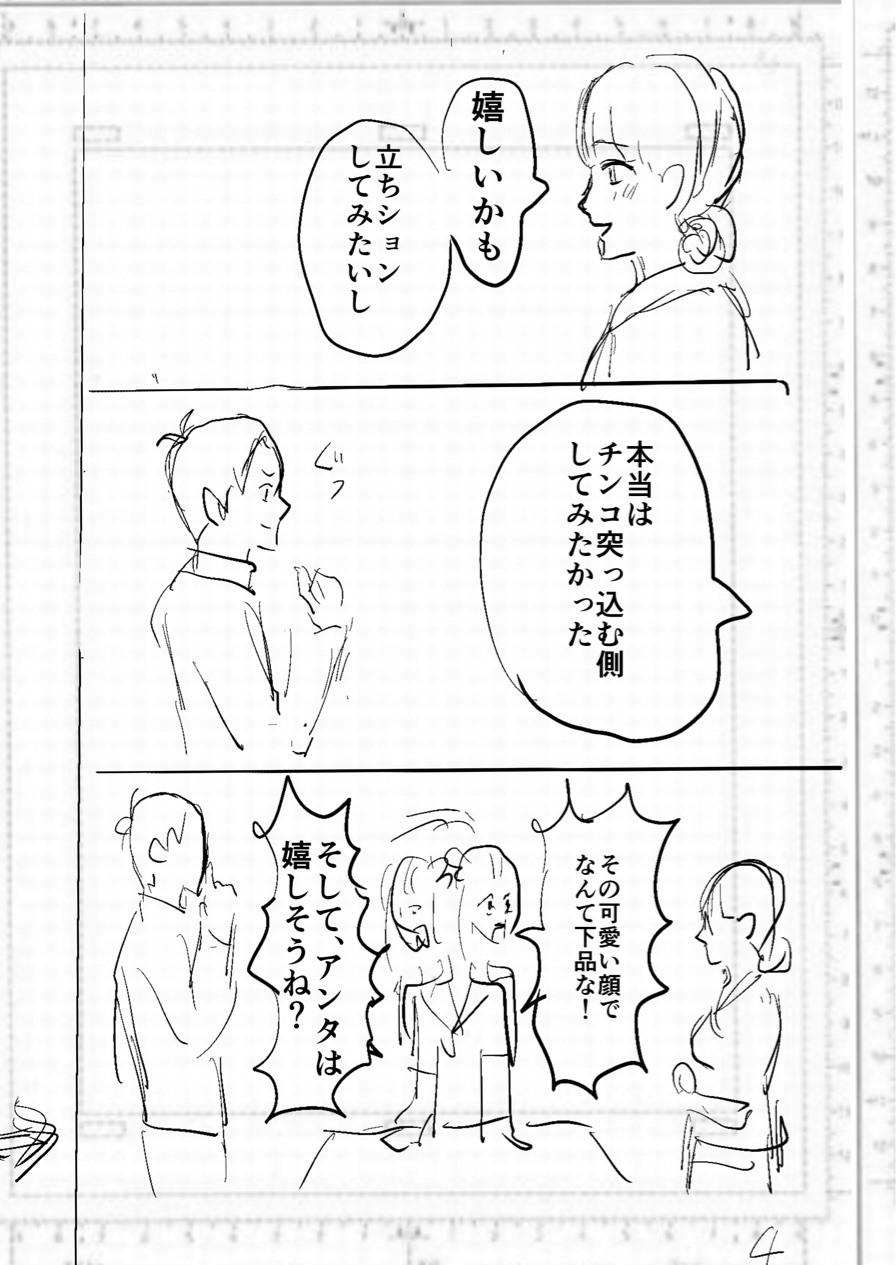 嬉しいかも
立ちション
してみたいし
本当は
チンコ突っ込む側
してみたかった
ぐっ
その可愛い顔で
なんて下品な！
そして、アンタは
嬉しそうね？
4